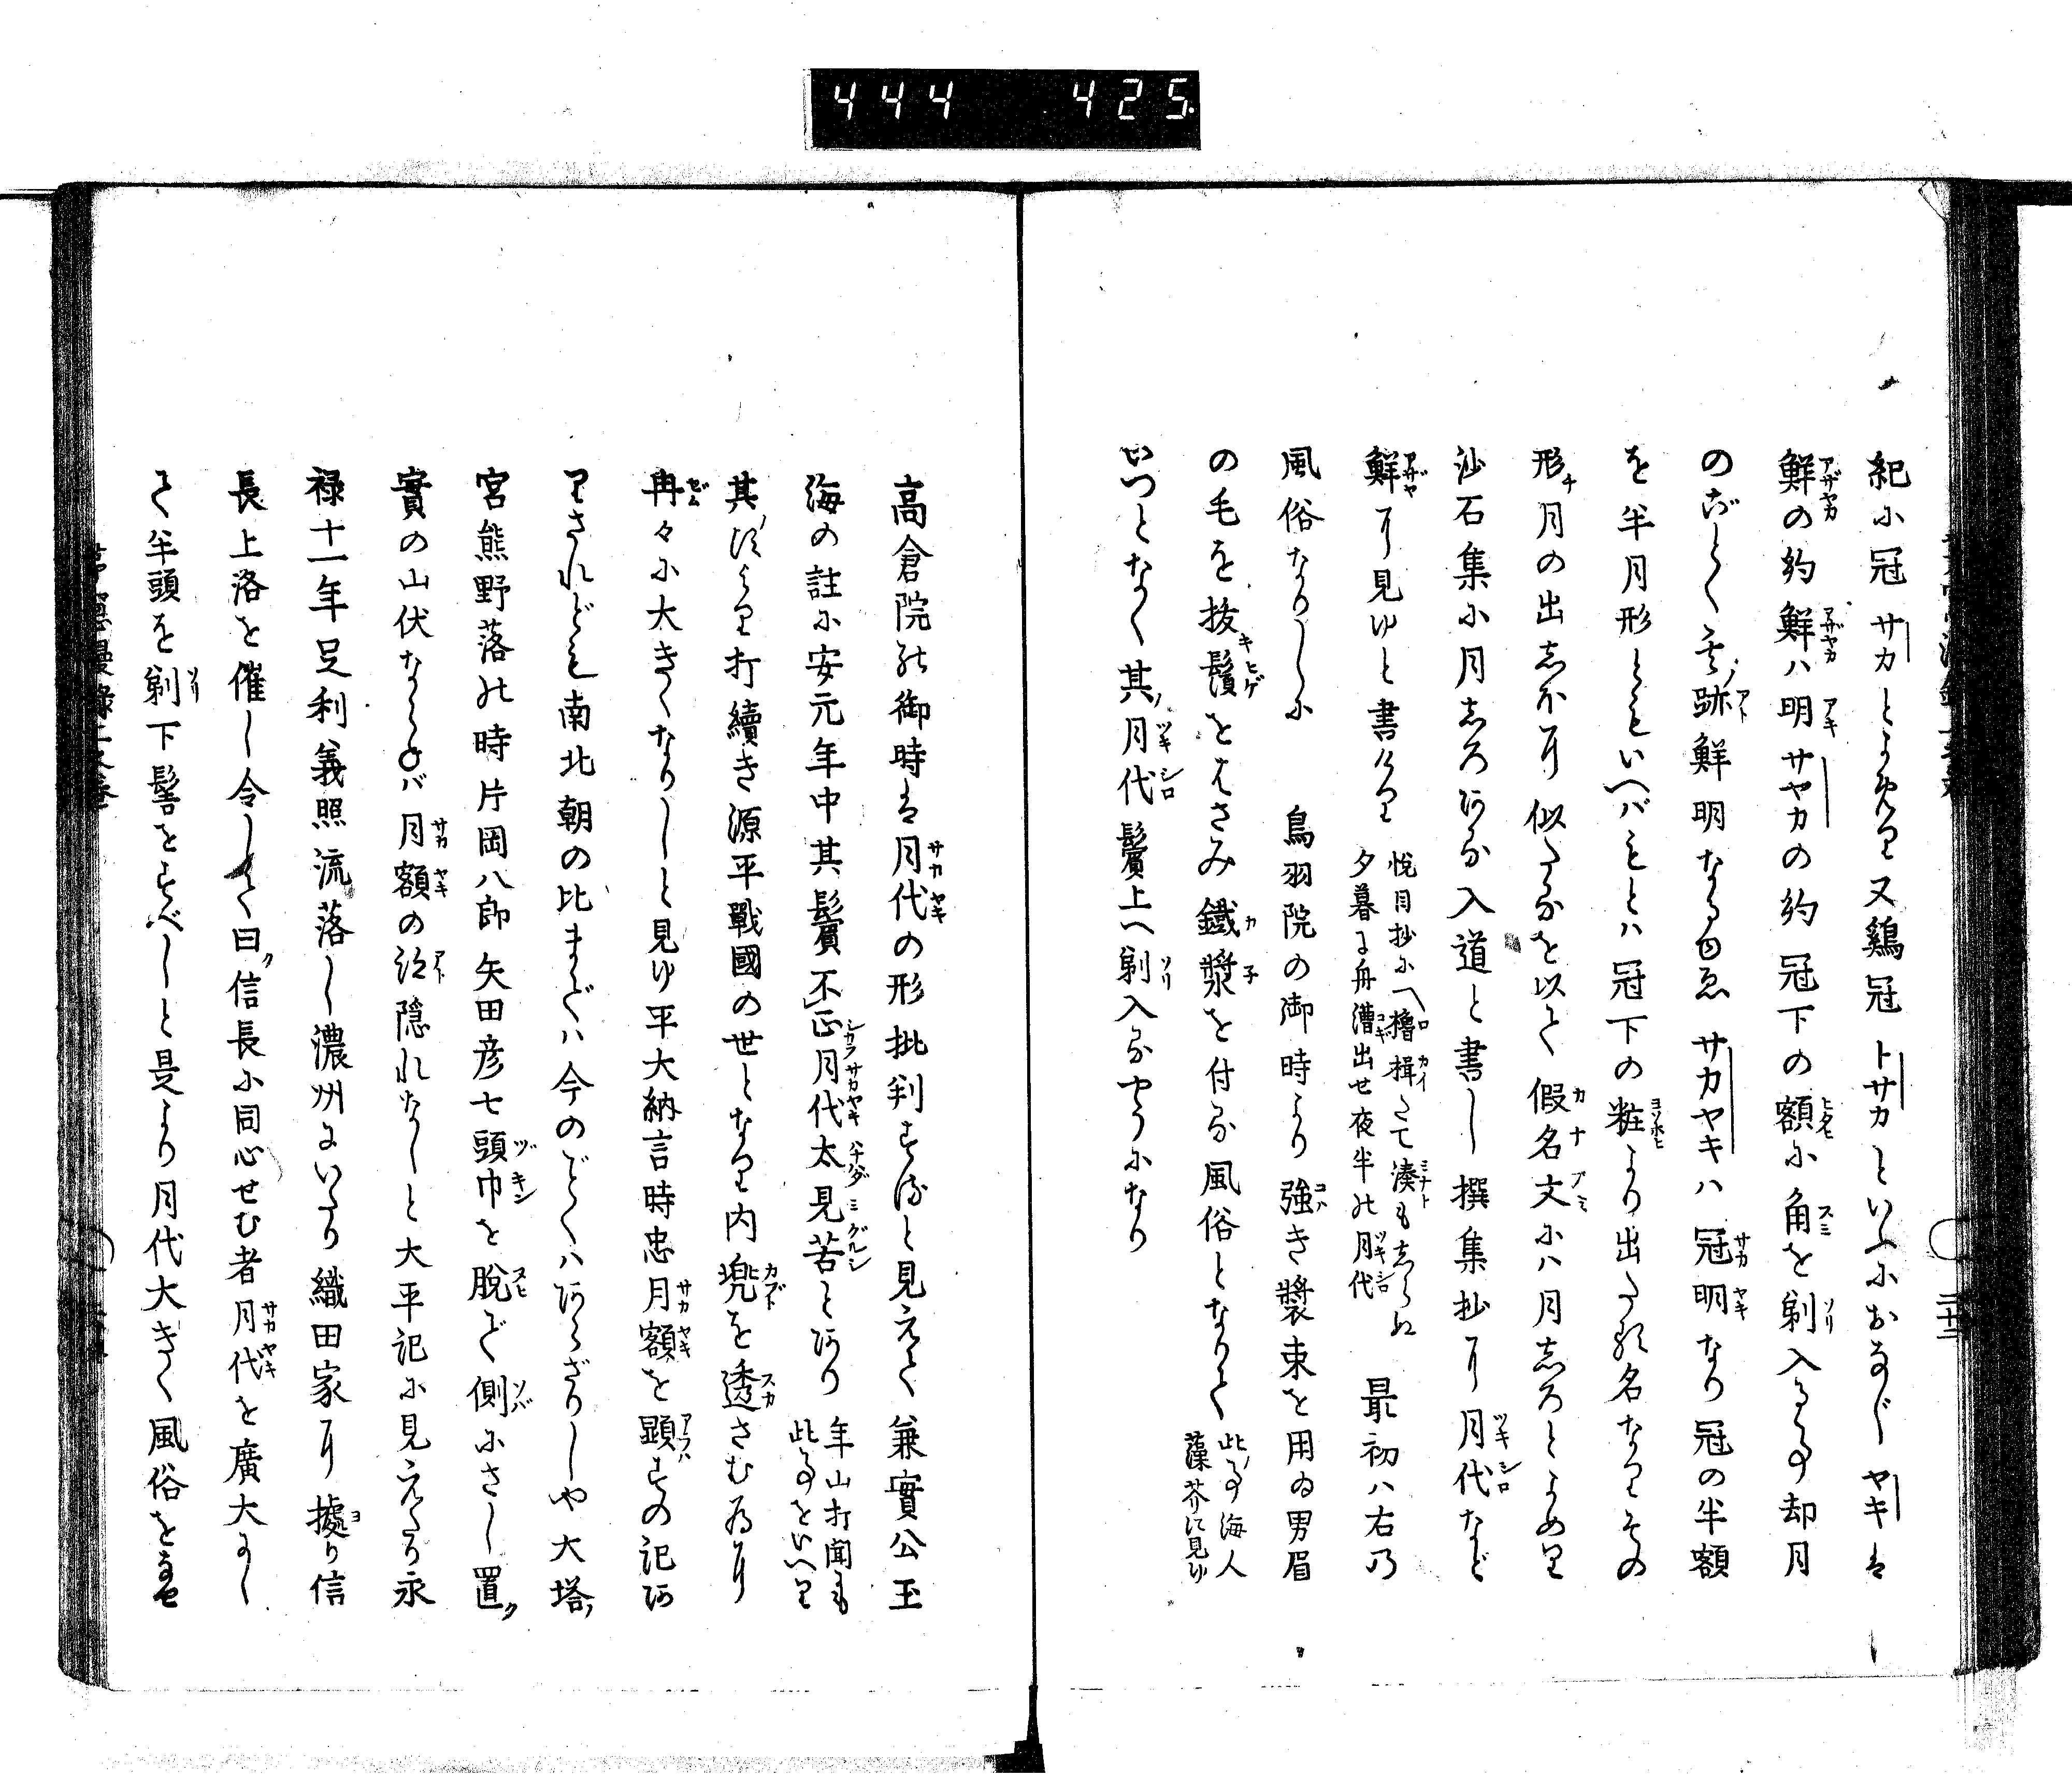 444 425
紀に冠サカとよめり又鷄冠トサカといふにおなじヤキは
鮮の約鮮ハ明サヤカの約冠下の額に角を剃入るゝ事却月
のごとく其跡鮮明なるゆゑサカヤキハ冠明なり冠の半額
を半月形ともいへバもとハ冠下の粧より出たる名なりその
形チ月の出しほに似たるを以て假名文にハ月しろとよめり
沙石集に月しろある入道と書し撰集抄に月代など
鮮に見ゆと書けり
悦目抄に〽櫓楫たて湊もしらぬ
夕暮に舟漕出せ夜半の月代
最初ハ右の
風俗なりしに 鳥羽院の御時より強き裝束を用ゐ男眉
の毛を抜鬚をはさみ鐡漿を付る風俗となりて
此事海人
藻芥に見ゆ
いつとなく其月代鬢上へ剃入るやうになり
高倉院の御時は月代の形批判すると見えて兼實公玉
海の註に安元年中其鬢不正月代太見苦とあり
年山打聞も
此事をいへり
其頃より打續き源平戰國の世となり内兜を透さむ為に
冉々に大きくなりしと見ゆ平大納言時忠月額を顕すの記あ
りされども南北朝の比まどハ今のごとくハあらざりしや大塔
宮熊野落の時片岡八郎矢田彦七頭巾を脱で側にさし置ク
實の山伏ならねバ月額の迹隠れなしと大平記に見えたり永
禄十一年足利義照流落し濃州にいたり織田家に據り信
長上洛を催し令して曰ク信長に同心せむ者月代を廣大にし
て半頭を剃下髻をすべしと是より月代大きく風俗をなせ